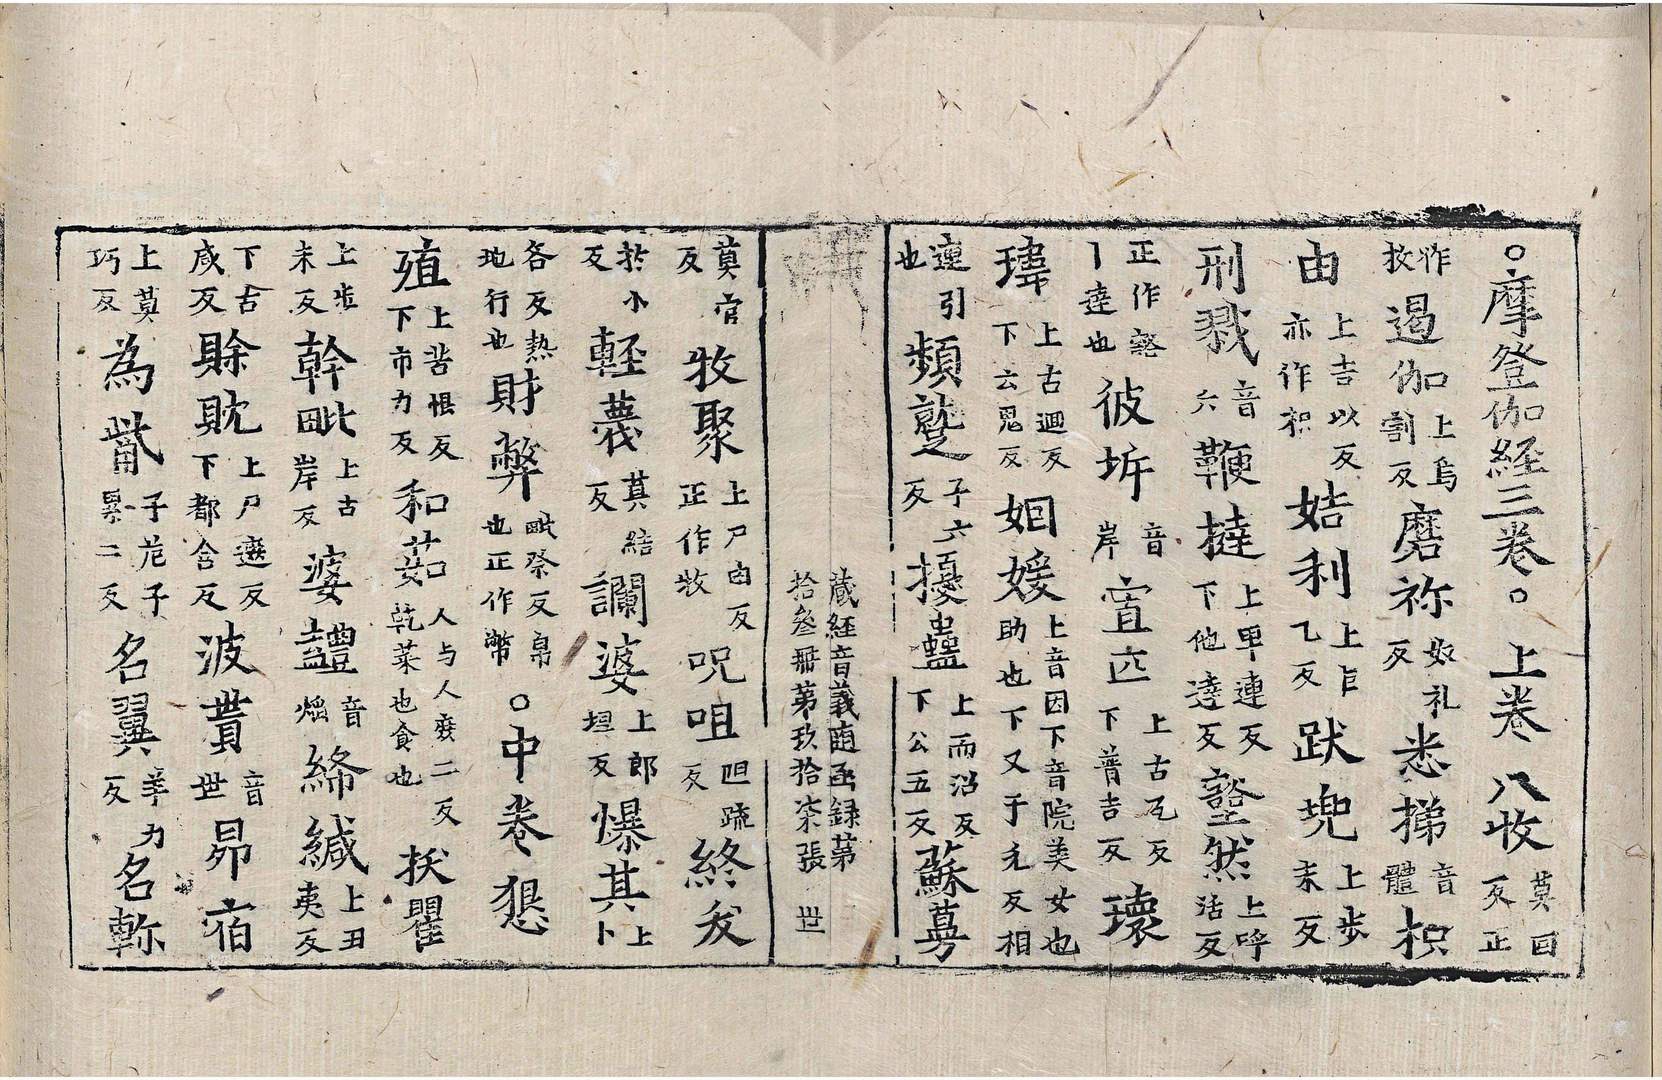 ○摩登伽経三卷○上卷八牧莫曰反正
作牧遏伽上烏割反磨祢奴礼反悉梯音體枳
由上吉以反亦作枳姞利上乍乙反跋兜上步末反
刑戮音六鞭撻上甲連反下他達反豁然上呼活反
正作豁丨達也彼圻音岸寘匹上古瓦反下普吉反瓌
瑋上古迴反下云鬼反姻媛上音因下音院美女也助也下又于元反相
連引也頻蹙子六反擾蠱上而沼反下公五反蘇蒭
蔵経音義随函録第拾叁冊第玖拾柒張 世
莫官反牧聚上尸由反正作牧呪咀阻疏反終矣
於小反輕蔑莫結反讕婆上郎坦反爆其上卜
各反熱地行也財弊毗祭反帛也正作幣○中卷懇
殖上苦恨反下市力反和茹人与人庶二反乾菜也食也扶瞿
上步末反幹毗上古岸反婆䜴音焰絺緘上丑夷反
下古咸反賖躭上尸遮反下都含反波貰音世昴宿
上莫巧反為觜子苑子累二反名翼羊力反名軫